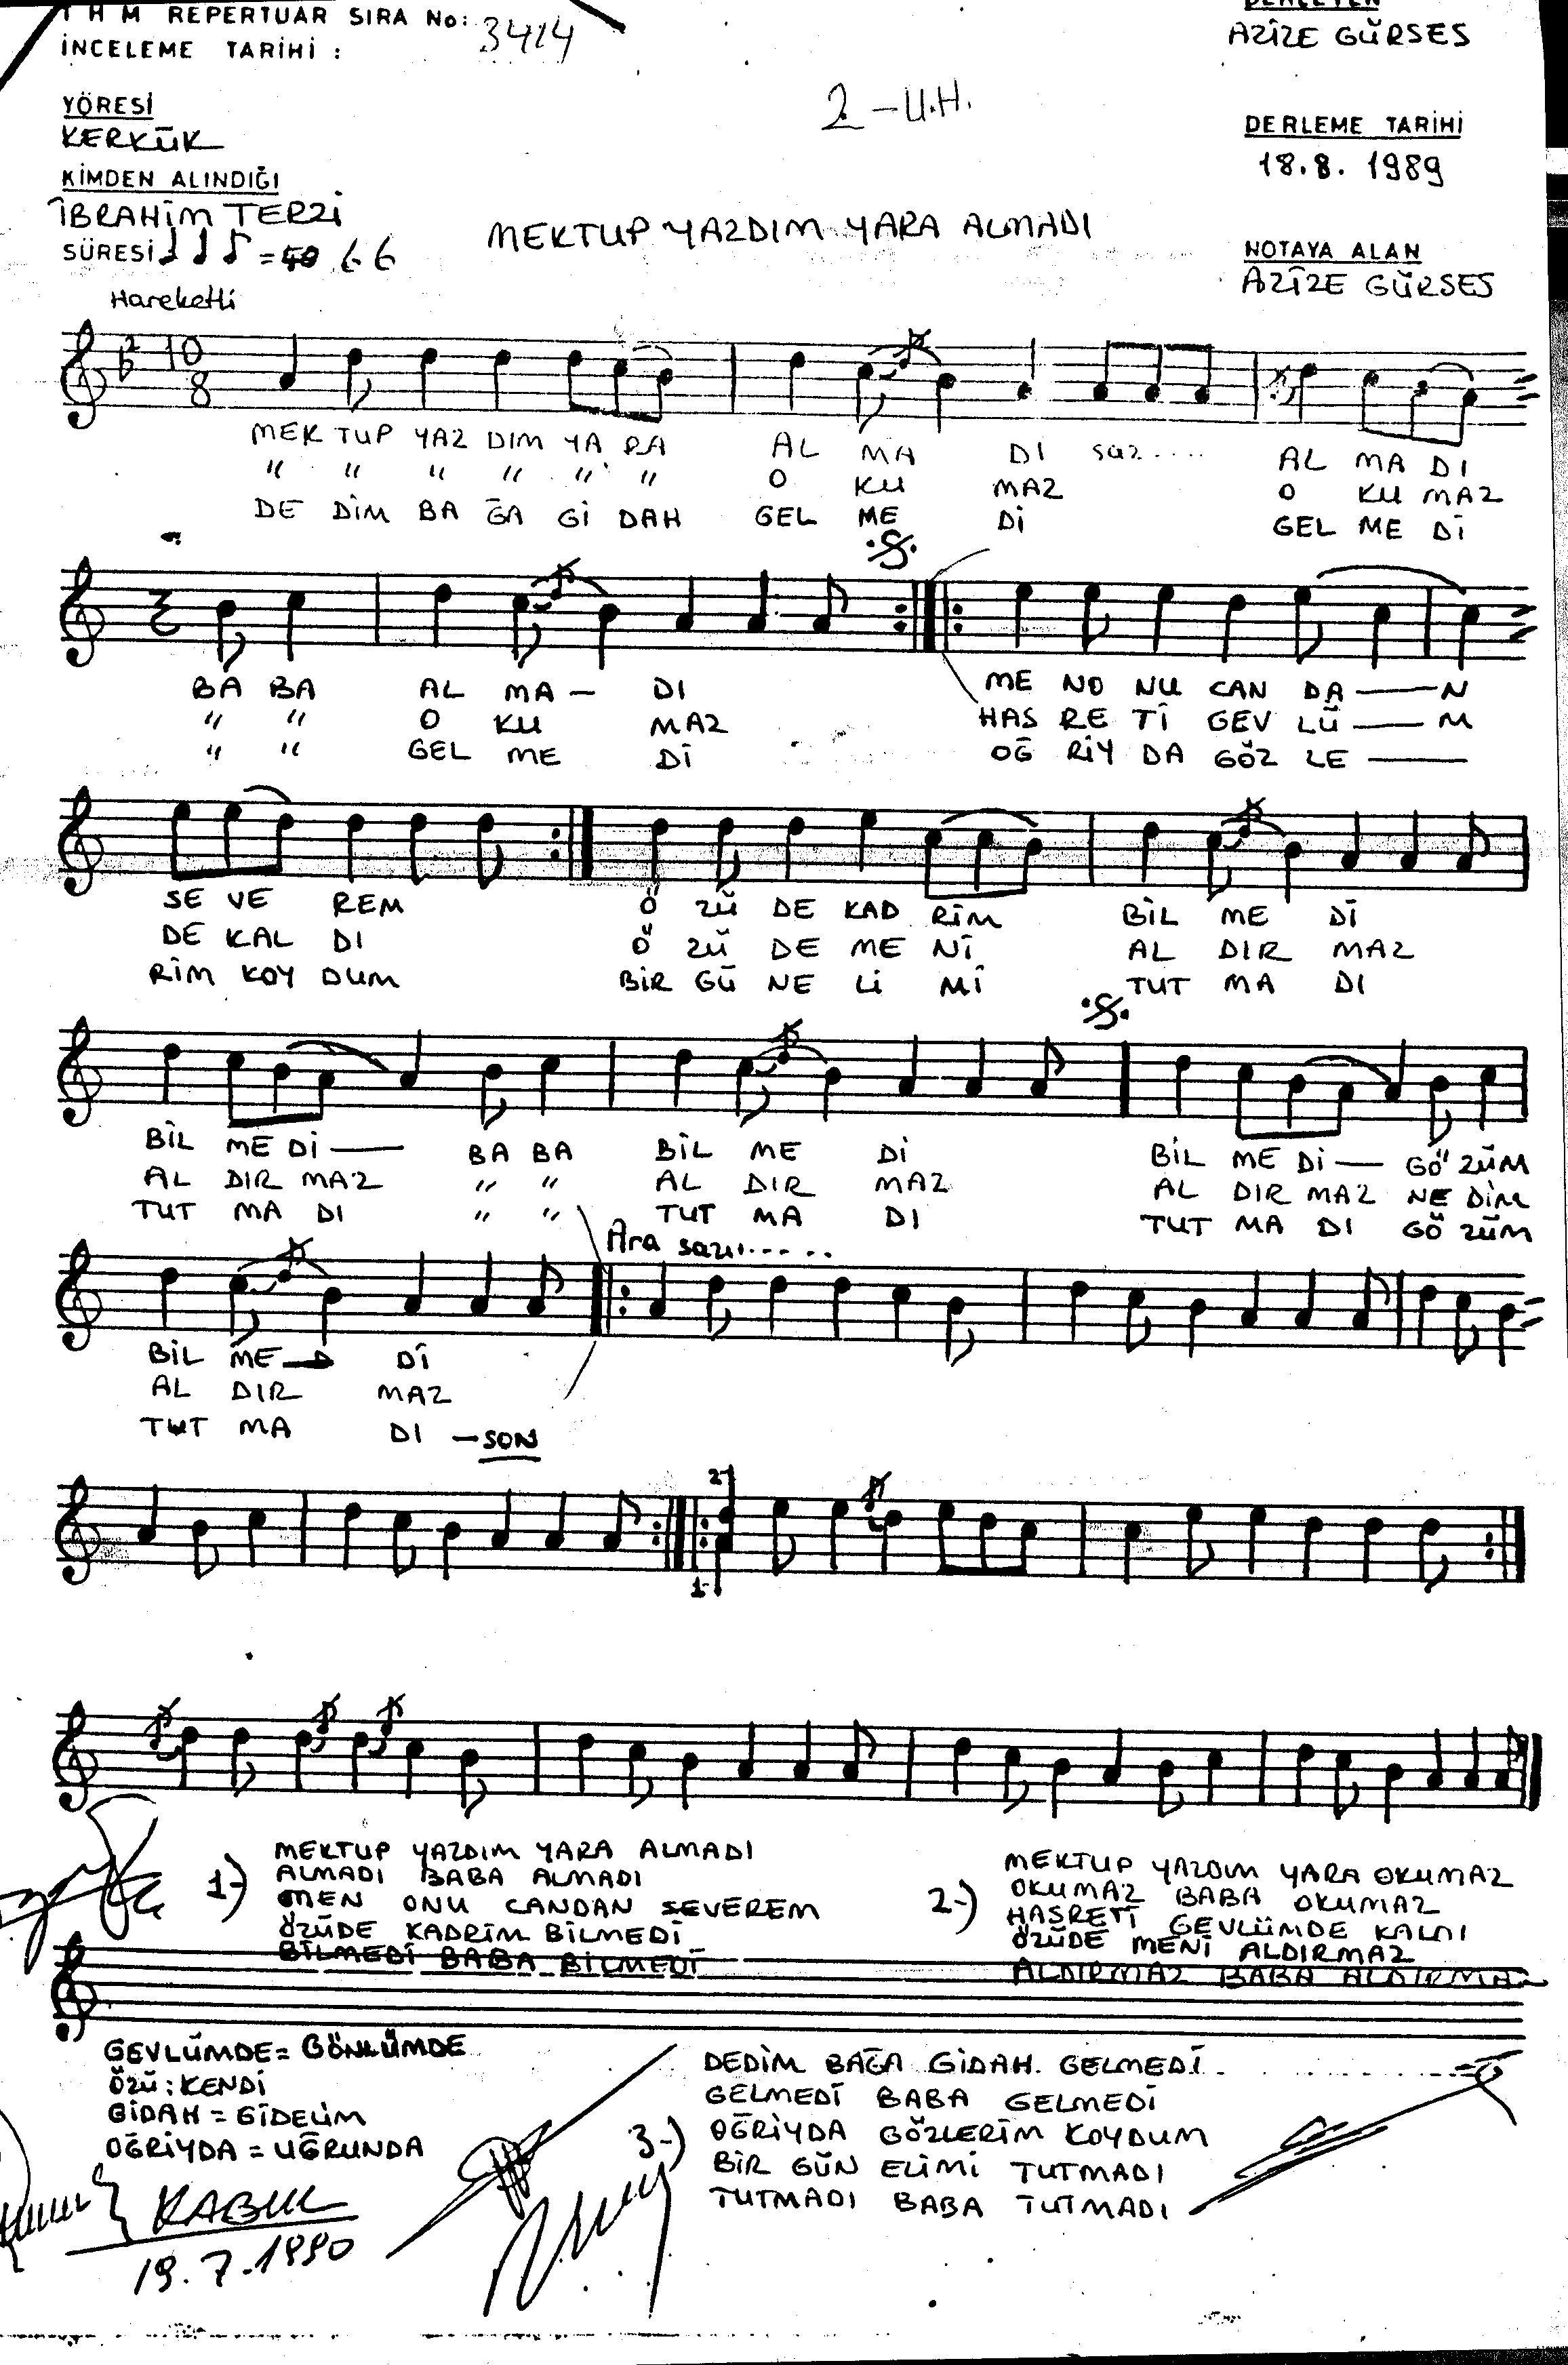 T H M REPERTUAR SIRA No: 3414
İNCELEME TARİHİ :
DERLEYEN
AZİZE GÜRSES
2 - U.H.
YÖRESİ
KERKÜK
DERLEME TARİHİ
18.8.1989
KİMDEN ALINDIĞI
İBRAHİM TERZİ
SÜRESİ = 66
MEKTUP YAZDIM YARA ALMADI
NOTAYA ALAN
AZİZE GÜRSES
Hareketli
2
10
8
MEK TUP YAZ DIM YA RA AL MA DI saz.... AL MA DI
" " " " " " O KU MAZ O KU MAZ
DE DİM BA ĞA Gİ DAH GEL ME Dİ GEL ME Dİ
BA BA AL MA — DI ME NO NU CAN DA — N
" " O KU MAZ HAS RE Tİ GEV LÜ — M
" " GEL ME Dİ OĞ RİY DA GÖZ LE —
SE VE REM Ö ZÜ DE KAD RİM BİL ME Dİ
DE KAL DI Ö ZÜ DE ME Nİ AL DIR MAZ
RİM KOY DUM BİR GÜ NE Lİ Mİ TUT MA DI
BİL ME Dİ — BA BA BİL ME Dİ BİL ME Dİ — GÖ ZÜM
AL DIR MAZ " " AL DIR MAZ AL DIR MAZ NE DİM
TUT MA DI " " TUT MA DI TUT MA DI GÖ ZÜM
Ara sazı.....
BİL ME Dİ
AL DIR MAZ
TUT MA DI — SON
2
1
1-) MEKTUP YAZDIM YARA ALMADI
ALMADI BABA ALMADI
MEN ONU CANDAN SEVEREM
ÖZÜDE KADRİM BİLMEDİ
BİLMEDİ BABA BİLMEDİ
2-) MEKTUP YAZDIM YARA OKUMAZ
OKUMAZ BABA OKUMAZ
HASRETİ GEVLÜMDE KALDI
ÖZÜDE MENİ ALDIRMAZ
ALDIRMAZ BABA ALDIRMAZ
GEVLÜMDE = GÖNLÜMDE
ÖZÜ : KENDİ
GİDAH = GİDELİM
OĞRİYDA = UĞRUNDA
3-) DEDİM BAĞA GİDAH GELMEDİ
GELMEDİ BABA GELMEDİ
OĞRİYDA GÖZLERİM KOYDUM
BİR GÜN ELİMİ TUTMADI
TUTMADI BABA TUTMADI
KABUL
19.7.1990